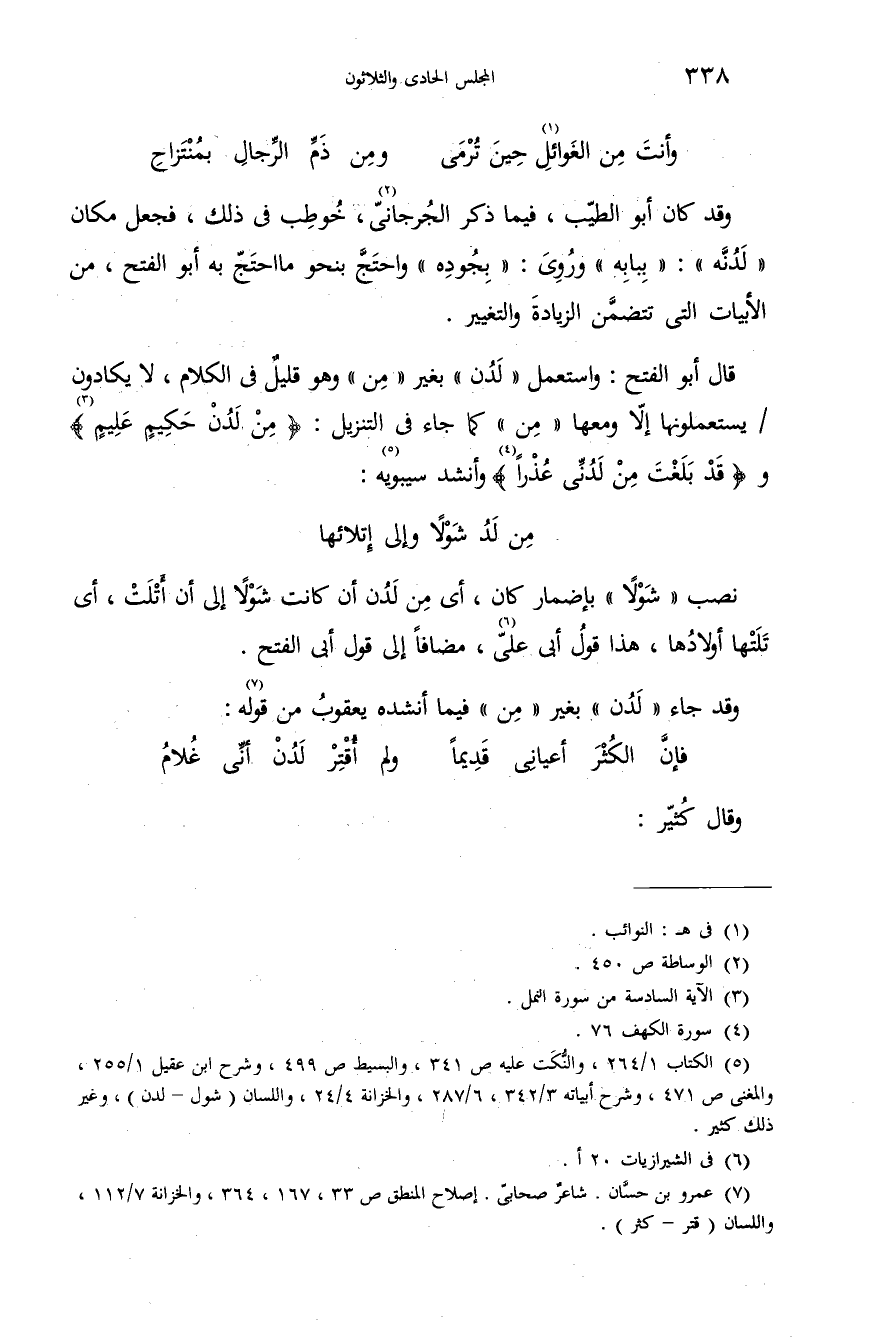 ٣٣٨ المجلس الحادى والثلاثون
وأنتَ مِن الغَوائلِ(١) حِينَ تُرْمَى ومِن ذَمِّ الرِّجالِ بمُنْتَزاحِ
وقد كان أبو الطيّب ، فيما ذكر الجُرجانىّ(٢) ، خُوطِب فى ذلك ، فجعل مكان
« لَدُنَّه » : « بِبابِه » ورُوِىَ : « بِجُودِه » واحتَجَّ بنحو مااحتَجّ به أبو الفتح ، من
الأبيات التى تتضمَّن الزيادةَ والتغيير .
قال أبو الفتح : واستعمل « لَدُن » بغير « مِن » وهو قليلٌ فى الكلام ، لا يكادون
/ يستعملونها إلّا ومعها « مِن » كما جاء فى التنزيل : ﴿ مِنْ لَدُنْ حَكِيمٍ عَلِيمٍ ﴾(٣)
و ﴿ قَدْ بَلَغْتَ مِنْ لَدُنِّى عُذْراً ﴾(٤) وأنشد سيبويه(٥) :
مِن لَدُ شَوْلًا وإلى إتلائها
نصب « شَوْلًا » بإضمار كان ، أى مِن لَدُن أن كانت شَوْلًا إلى أن أَتْلَتْ ، أى
تَلَتْها أولادُها ، هذا قولُ أبى علىّ(٦) ، مضافاً إلى قول أبى الفتح .
وقد جاء « لَدُن » بغير « مِن » فيما أنشده يعقوبُ من قوله(٧) :
فإنَّ الكُثْرَ أعيانِى قَدِيماً ولم أُقْتِرْ لَدُنْ أنِّى غُلامُ
وقال كُثيّر :
(١) فى هـ : النوائب .
(٢) الوساطة ص ٤٥٠ .
(٣) الآية السادسة من سورة النمل .
(٤) سورة الكهف ٧٦ .
(٥) الكتاب ٢٦٤/١ ، والنُّكَت عليه ص ٣٤١ ، والبسيط ص ٤٩٩ ، وشرح ابن عقيل ٢٥٥/١ ،
والمغنى ص ٤٧١ ، وشرح أبياته ٣٤٢/٣ ، ٢٨٧/٦ ، والخزانة ٢٤/٤ ، واللسان ( شول – لدن ) ، وغير
ذلك كثير .
(٦) فى الشيرازيات ٢٠ أ .
(٧) عمرو بن حسَّان . شاعرٌ صحابىّ . إصلاح المنطق ص ٣٣ ، ١٦٧ ، ٣٦٤ ، والخزانة ١١٢/٧ ،
واللسان ( قتر – كثر ) .